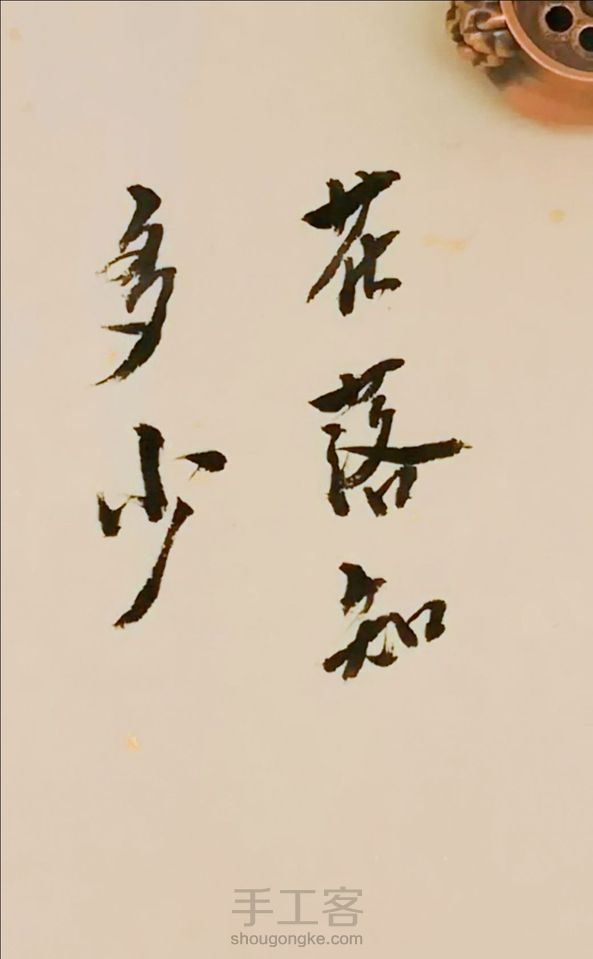 花落知
多少
手工客
shougongke.com